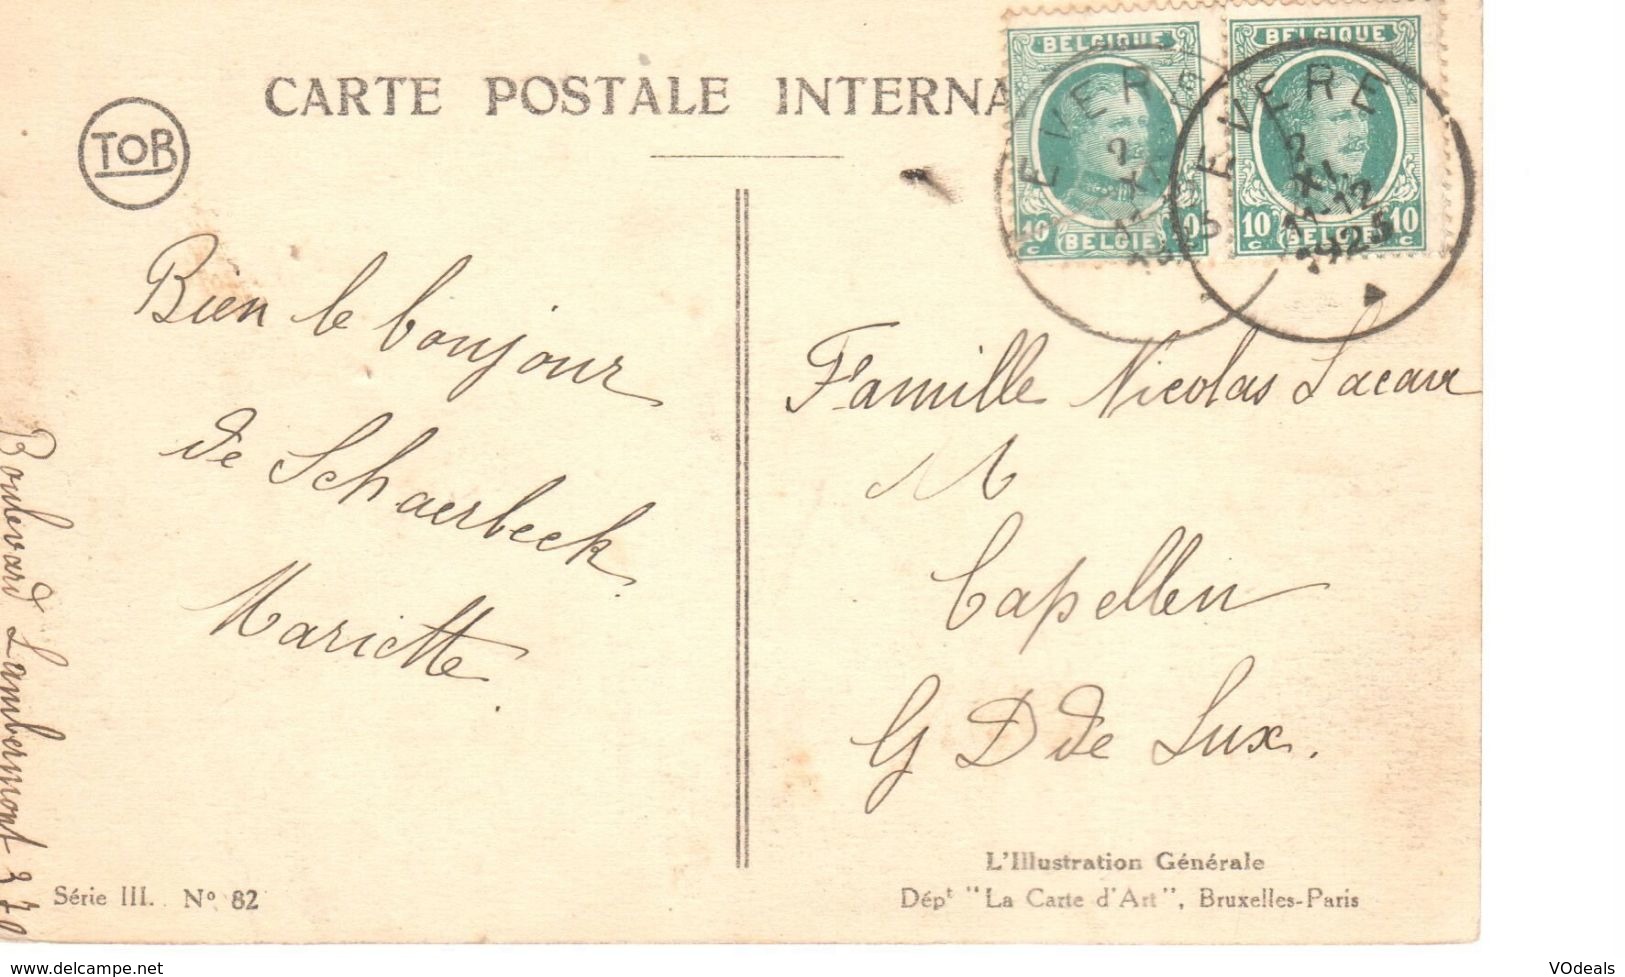 CARTE POSTALE INTERNA
TOB
BELGIQUE
10 c BELGIË 10 c
BELGIQUE
10 c BELGIË 10 c
EVERE
2
XI
11-12
1925
Bien le bonjour
de Schaerbeek
Mariette.
Boulevard Lambermont 370
Famille Nicolas
M
Capellen
G D de Lux.
L'Illustration Générale
Dépt "La Carte d'Art", Bruxelles-Paris
Série III. No 82
www.delcampe.net
VOdeals